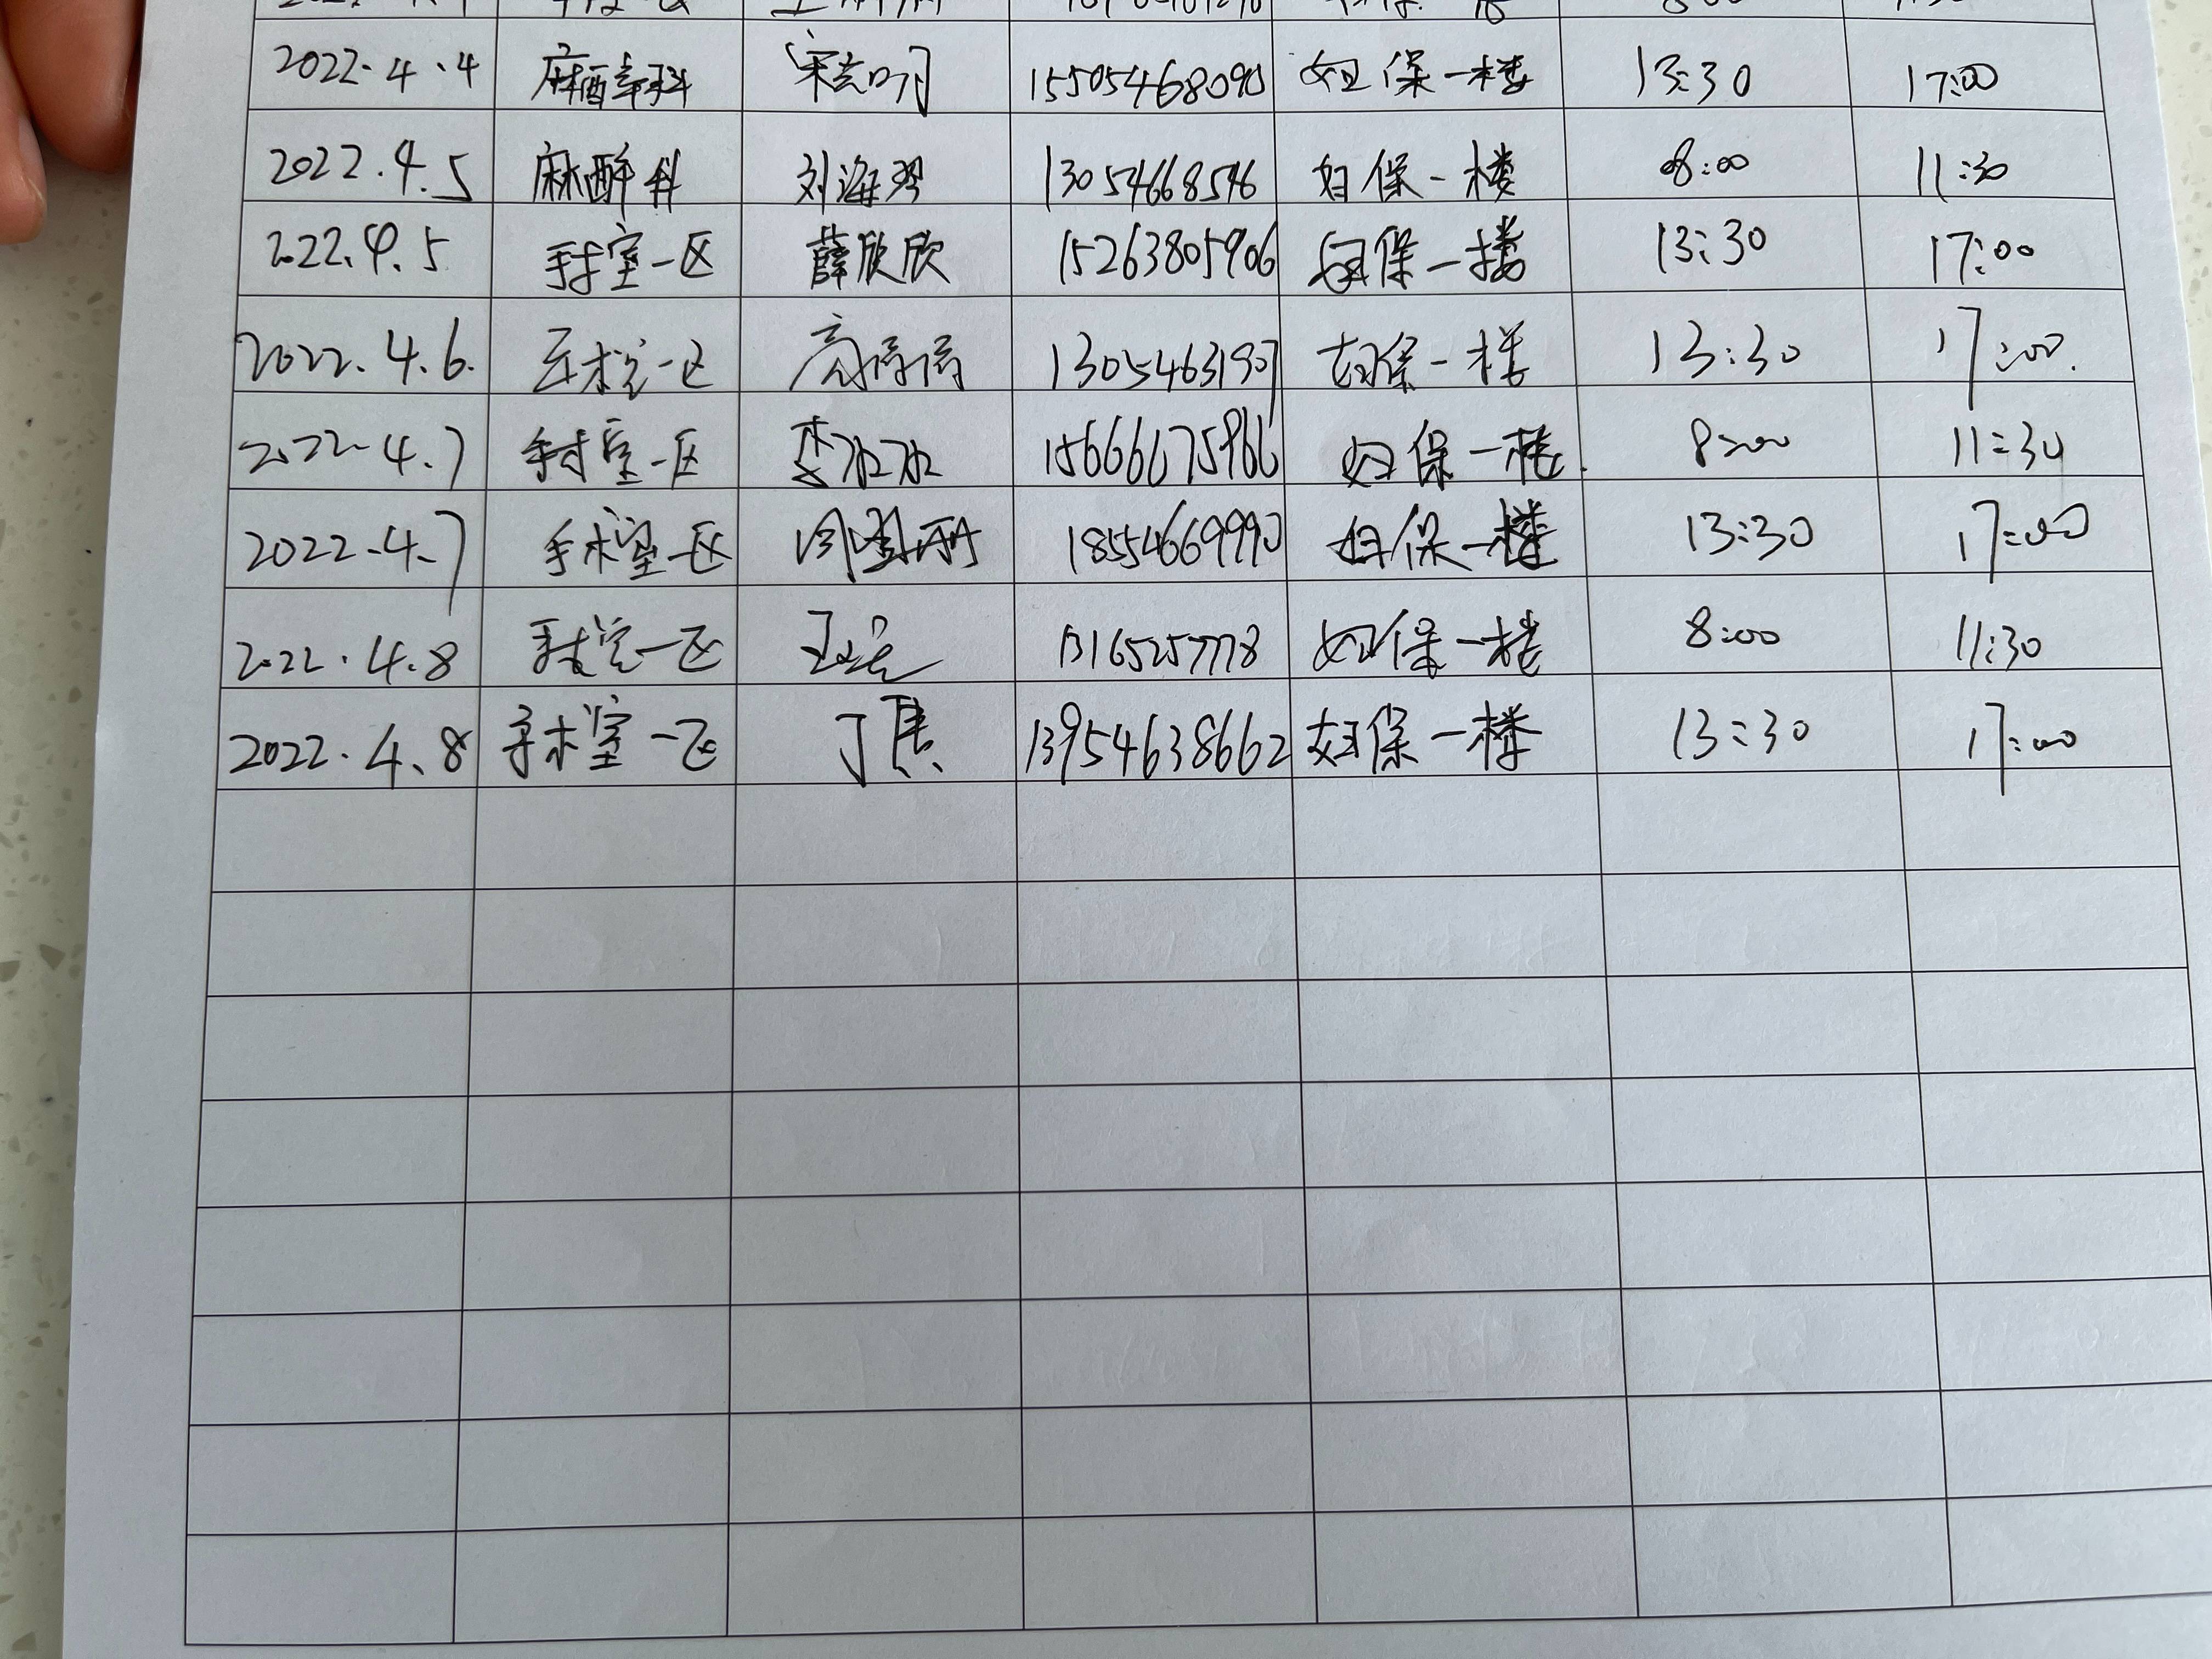 2022.4.4 麻醉科 宋兰明 15505468090 妇保一楼 13:30 17:00
2022.4.5 麻醉科 刘海 13054668546 妇保一楼 8:00 11:30
2022.4.5 手术室一区 薛欣欣 15263805906 妇保一楼 13:30 17:00
2022.4.6. 手术室一区 高倩倩 13054631907 妇保一楼 13:30 17:00.
2022.4.7 手术室一区 李 15666675966 妇保一楼. 8:00 11:30
2022.4.7 手术室一区 18554669990 妇保一楼 13:30 17:00
2022.4.8 手术室一区 王 13165257778 妇保一楼 8:00 11:30
2022.4.8 手术室一区 丁 13954638662 妇保一楼 13:30 17:00